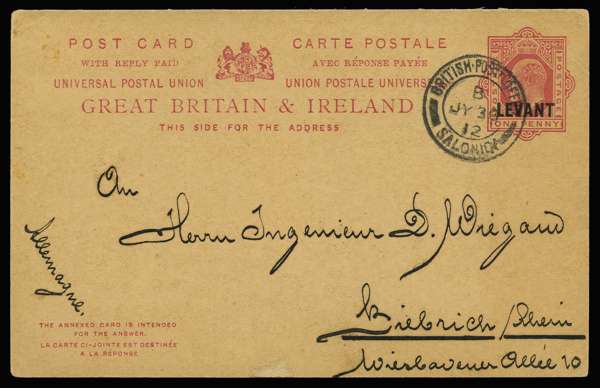 POST CARD
WITH REPLY PAID
UNIVERSAL POSTAL UNION
CARTE POSTALE
AVEC RÉPONSE PAYÉE
UNION POSTALE
GREAT BRITAIN & IRELAND
THIS SIDE FOR THE ADDRESS
BRITISH·POST
B
JY 3
12
SALONICA
LEVANT
ONE PENNY
An
Herrn Ingenieur D. Wiegand
Biebrich /Rhein
Wiesbadener Allée 10
Allemagne.
THE ANNEXED CARD IS INTENDED
FOR THE ANSWER.
LA CARTE CI-JOINTE EST DESTINÉE
À LA RÉPONSE